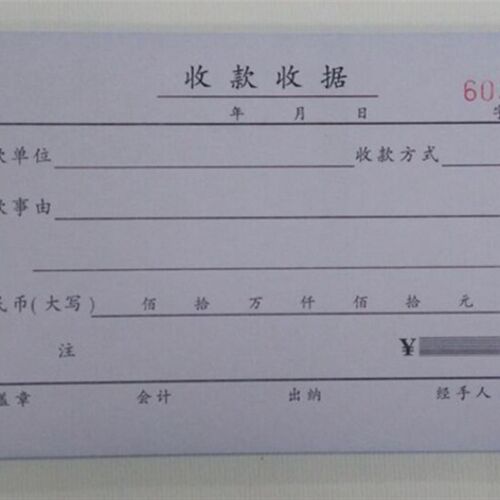 收款收据
60
年 月 日
款单位 收款方式
款事由
民币(大写) 佰 拾 万 仟 佰 拾 元
注 ¥
盖章 会计 出纳 经手人